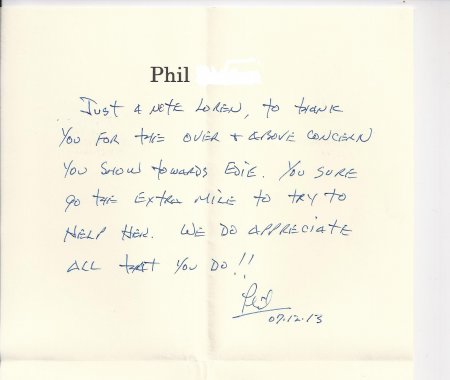 Phil
Just a note Loren, to thank
you for the over + above concern
you show towards Edie. You sure
go the extra mile to try to
help her. We do appreciate
all that you do!!
Phil
09.12.13